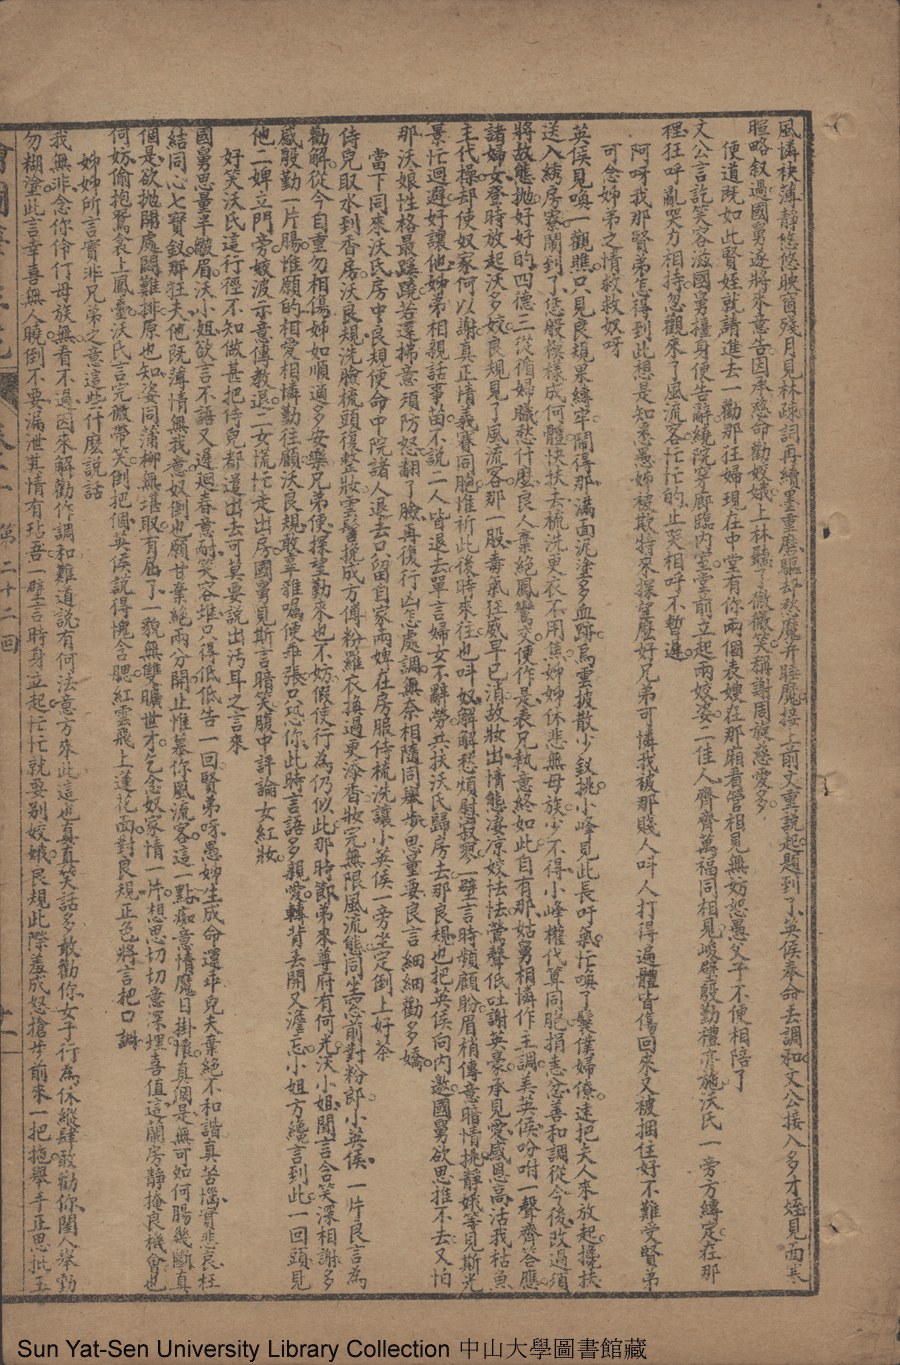 風憐秧薄靜悠悠映窗殘月見林疎詞再續墨重磨驅却愁魔并睡魔接上前文重說起題到了英侯奉命去調和文公接入多才姪見面共
暄略叙過國舅遂將來意告因承慈命勸姣娥上林聽了微微笑稱謝周旋慈愛多
便道既如此賢姪就請進去一勸那狂婦現在中堂有你兩個表嫂在那廂看管相見無妨恕愚父子不便相陪了
文公言訖笑容滋國舅擡身便告辭繞院穿廊臨內室堂前立起兩姣姿二佳人齊齊萬福同相見峻壁殷勤禮亦施沃氏一旁方縛定在那
程狂呼亂哭力相持忽觀來了風流客忙忙的止哭相呼不暫遲
阿呀我那賢弟怎得到此想是知悉愚姊被欺特來探望麼好兄弟可憐我被那賤人叫人打得遍體皆傷回來又被捆住好不難受賢弟
可念姊弟之情救救奴呀
英侯見喚一觀瞧只見良規果縛牢鬧得那滿面泥塗多血跡烏雲披散少釵挑小峰見此長吁氣忙喚了鬟僕婦僚速把夫人來放起攙扶
送入綉房寮鬧到了恁般模樣成何體快扶去梳洗更衣不用焦姊姊休悲無母族少不得小峰權代算同胞捐恚忿善和調從今後改過須
將故態拋好好的四德三從循婦職愁什麼良人棄絕鳳鸞交便作是表兄執意終如此自有那姑舅相憐作主調美英侯吩咐一聲齊答應
諸婦女登時放起沃多姣良規見了風流客那一股毒氣狂威早已消故妝出情態淒凉姣怯怯鶯聲低吐謝英豪承見愛感恩高活我枯魚
主代操却使奴家何以謝真正情義賽同胞惟祈此後時來往也叫奴解解愁煩慰寂寥一壁言時頻顧盼眉梢傳意暗情挑靜娥等見斯光
景忙迴避好讓他姊弟相親話事苗不說一人皆退去單言婦女不辭勞共扶沃氏歸房去那良規也把英侯向內邀國舅欲思推不去又怕
那沃娘性格最蹊蹺若還拂意須防怒翻了臉再復行凶怎處調無奈相隨同舉步思量要良言細細勸多嬌
當下同來沃氏房中良規便命中院諸人退去只留自家兩婢在房服侍梳洗讓小英侯一旁坐定倒上好茶
侍兒取水到香房沃良規洗臉梳頭復整妝雲鬢攏成方傅粉羅衣換過更添香妝完無限風流態同坐窓前對粉郎小英侯一片良言為
勸解從今自重勿相傷姊如順適多安樂兄弟便探望勤來也不妨假使行為仍似此那時節弟來尊府有何光沃小姐聞言含笑深相謝多
感殷勤一片腸惟願的相愛相憐勤往顧沃良規敢辜雅囑使乖張只恐你此時言語多親愛轉背去開又澹忘小姐方纔言到此一回頭見
他二婢立門旁嬌波示意傳教退二女慌忙走出房國舅見斯言暗笑腹中評論女紅妝
好笑沃氏這行徑不知做甚把侍兒都遣出去可莫要說出汚耳之言來
國舅思量半皺眉沃小姐欲言不語又遲迴春意耐笑容堆只得低低告一回賢弟呀愚姊生成命運乖兒夫棄絕不和諧真苦惱實悲哀枉
結同心七寶釵那狂夫他既薄情無我意奴倒也願甘棄絕兩分開止惟慕你風流客這一點痴意情魔日掛懷真個是無可如何腸幾斷真
個是欲拋開處闘難排原也知姿同蒲柳無堪取有屈了一貌無雙曠世才乞念奴家情一片想思切切意深埋喜值這蘭房靜掩良機會也
何妨偷抱鴛衾上鳳臺沃氏言完微帶笑倒把個英侯說得愧含腮紅雲飛上蓮花面對良規正色將言把口調
姊姊所言實非兄弟之意這些什麼說話
我無非念你伶仃母族無看不過因來解勸作調和難道說有何法意方來此這也真真笑話多敢勸你女子行為休縱肆敢勸你閨人舉動
勿糊塗此言幸喜無人曉倒不要漏泄其情有玷吾一壁言時身立起忙忙就要別姣娥良規此際羞成怒搶步前來一把拖舉手正思批玉
第二十二回
Sun Yat-Sen University Library Collection 中山大學圖書館藏